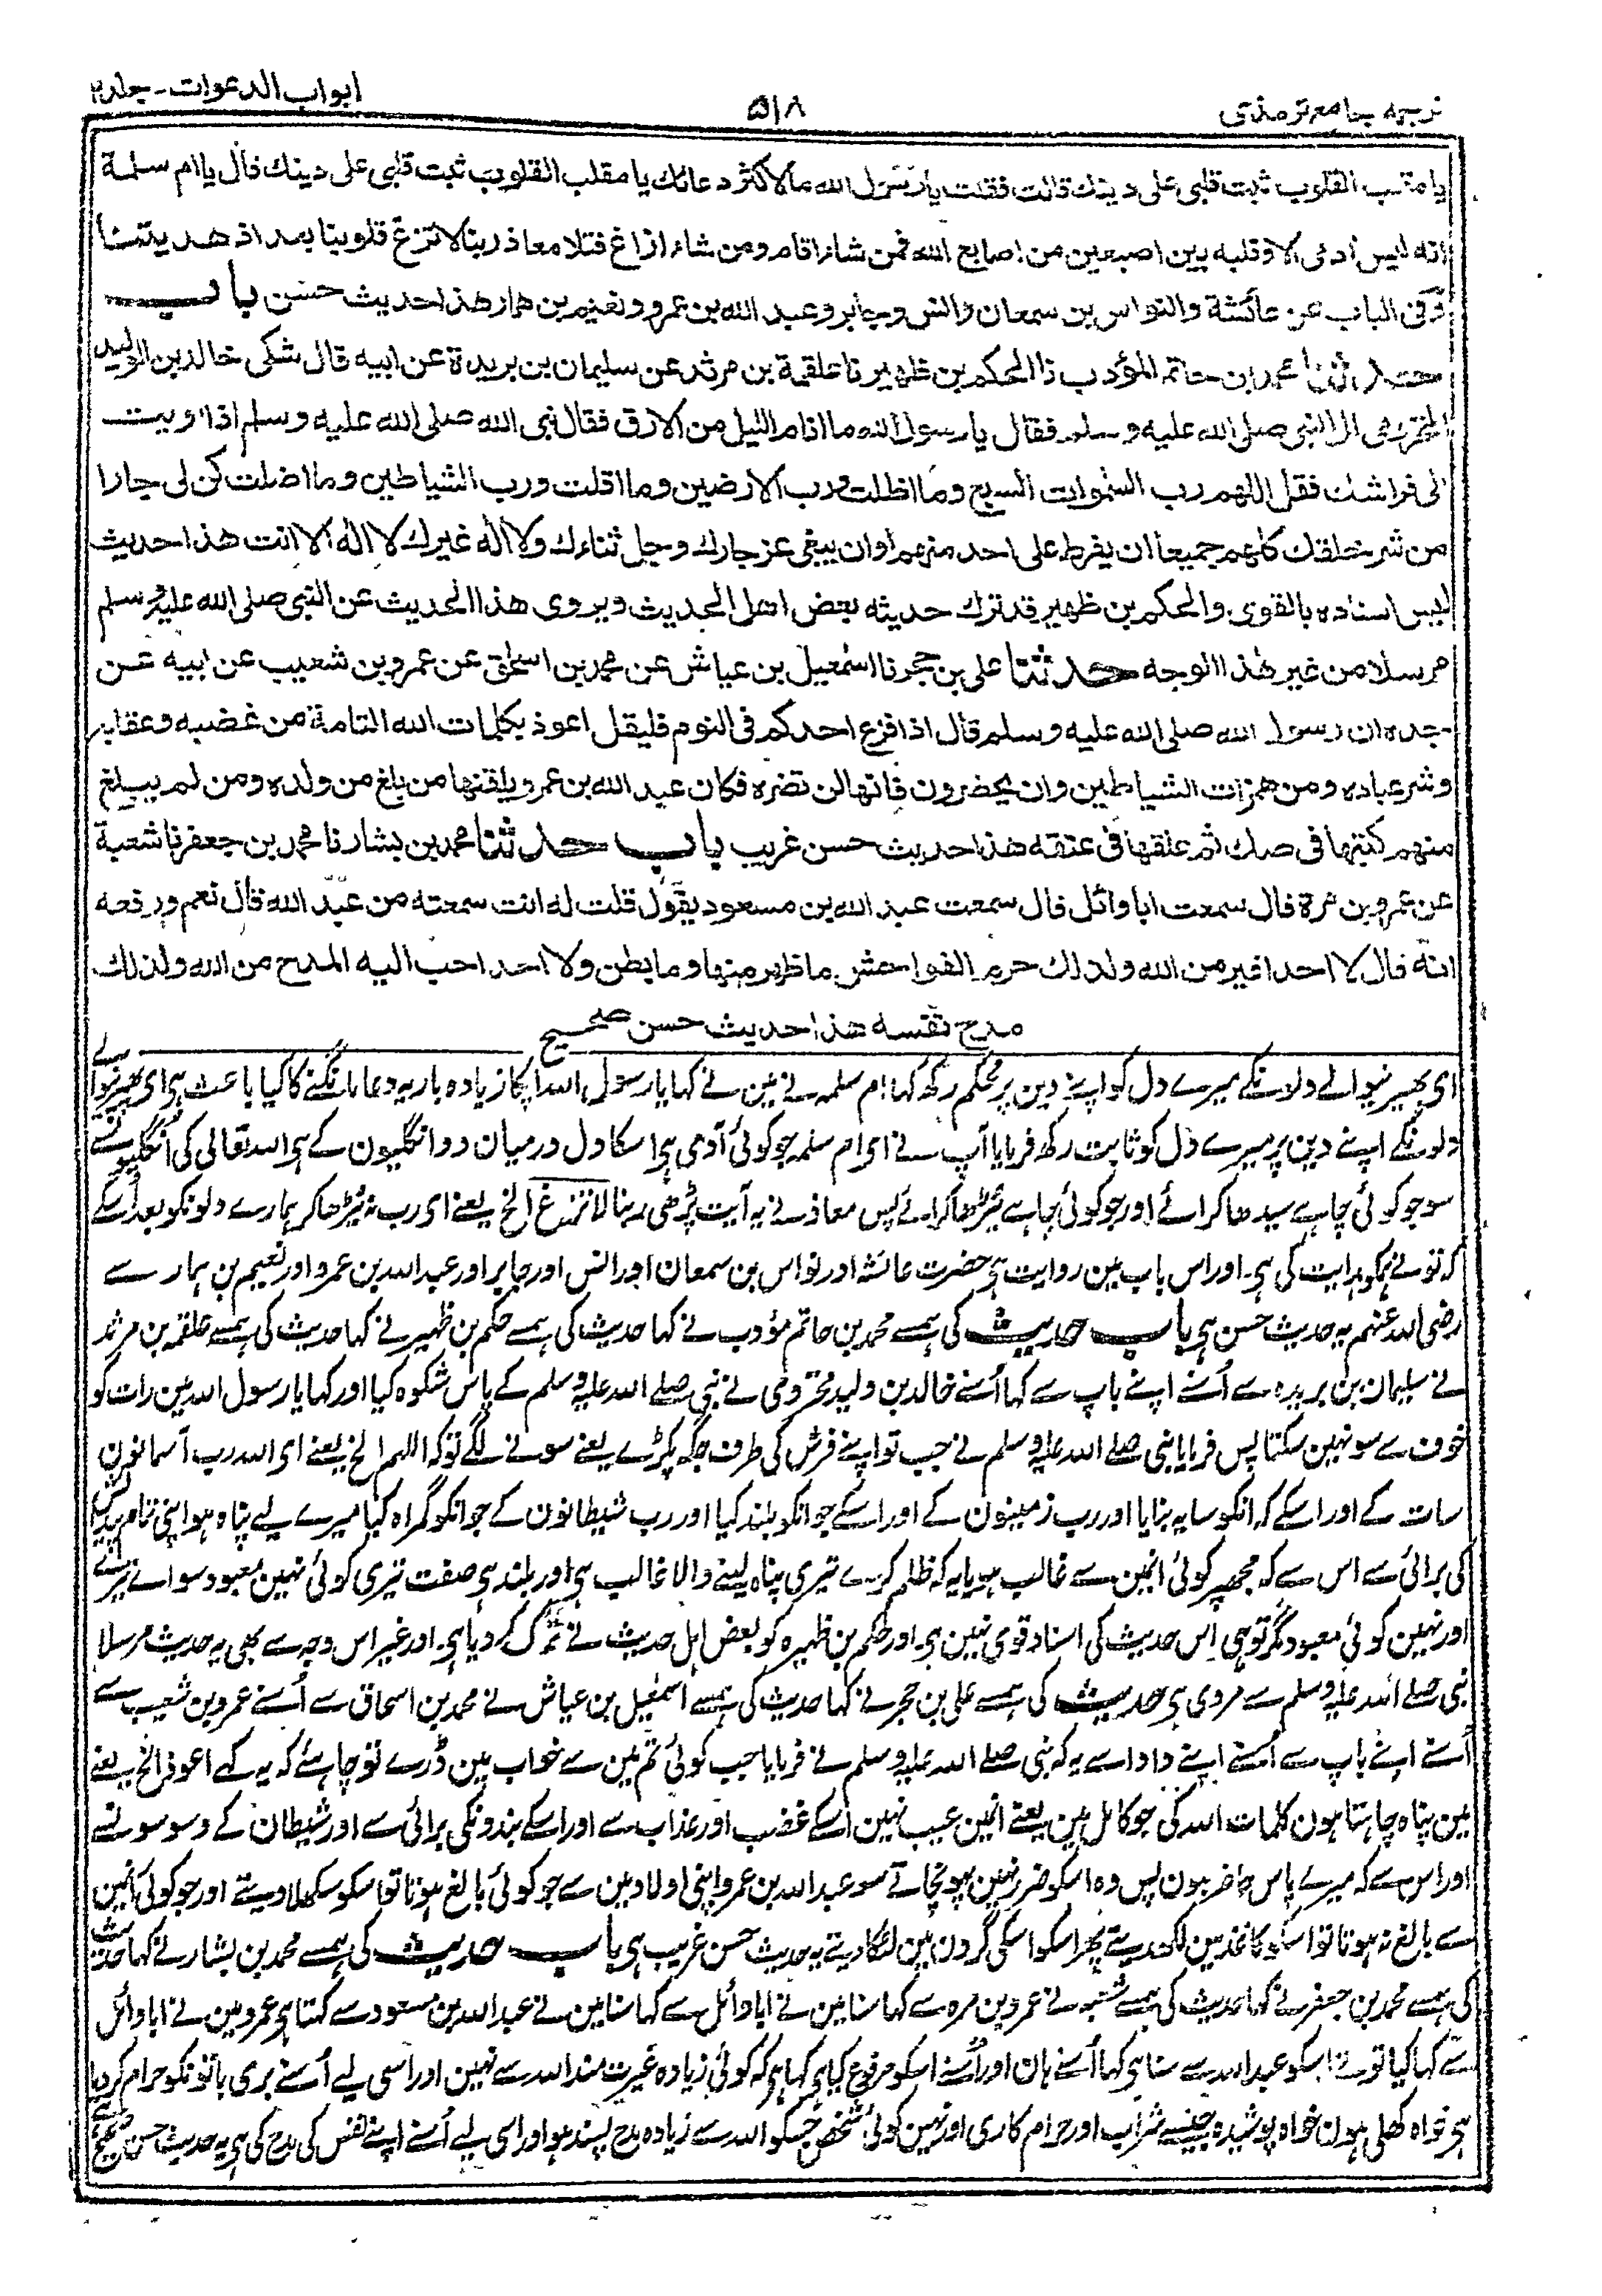 ترجمہ جامع ترمذی
۵۱۸
ابواب الدعوات - جلد ۲
يا مقلب القلوب ثبت قلبى على دينك قالت فقلت يا رسول الله ما لاكثر دعائك يا مقلب القلوب ثبت قلبى على دينك قال يا ام سلمة
انه ليس ادمى الا وقلبه بين اصبعين من اصابع الله فمن شاء اقام ومن شاء ازاغ فتلا معاذ ربنا لا تزغ قلوبنا بعد اذ هديتنا
وفى الباب عن عائشة والنواس بن سمعان وانس وجابر وعبد الله بن عمرو ونعيم بن همار هذا حديث حسن باب
حدثنا محمد بن حاتم المؤدب نا الحكم بن ظهير نا علقمة بن مرثد عن سليمان بن بريدة عن ابيه قال شكى خالد بن الوليد
المخزومى الى النبى صلى الله عليه وسلم فقال يا رسول الله ما انام الليل من الارق فقال نبى الله صلى الله عليه وسلم اذا اويت
الى فراشك فقل اللهم رب السموات السبع وما اظلت ورب الارضين وما اقلت ورب الشياطين وما اضلت كن لى جارا
من شر خلقك كلهم جميعا ان يفرط على احد منهم او ان يبغى عز جارك وجل ثناءك ولا اله غيرك لا اله الا انت هذا حديث
ليس اسناده بالقوى والحكم بن ظهير قد ترك حديثه بعض اهل الحديث ويروى هذا الحديث عن النبى صلى الله عليه وسلم
مرسلا من غير هذا الوجه حدثنا على بن حجر نا اسمعيل بن عياش عن محمد بن اسحق عن عمرو بن شعيب عن ابيه عن
جده ان رسول الله صلى الله عليه وسلم قال اذا فزع احدكم فى النوم فليقل اعوذ بكلمات الله التامة من غضبه وعقابه
وشر عباده ومن همزات الشياطين وان يحضرون فانها لن تضره فكان عبد الله بن عمرو يلقنها من بلغ من ولده ومن لم يبلغ
منهم كتبها فى صك ثم علقها فى عنقه هذا حديث حسن غريب باب حدثنا محمد بن بشار نا محمد بن جعفر نا شعبة
عن عمرو بن مرة قال سمعت ابا وائل قال سمعت عبد الله بن مسعود يقول قلت له انت سمعته من عبد الله قال نعم ورفعه
انه قال لا احد اغير من الله ولذلك حرم الفواحش ما ظهر منها وما بطن ولا احد احب اليه المدح من الله ولذلك
مدح نفسه هذا حديث حسن صحيح
ای پھیرنیوالے دلونکے میرے دل کو اپنے دین پر محکم رکھ کہا ام سلمہ نے مین نے کہا یا رسول اللہ آپکا زیادہ بار یہ دعا مانگنے کا کیا باعث ہی ای پھیرنیوالے
دلونکے اپنے دین پر میرے دل کو ثابت رکھ فرمایا آپ نے ای ام سلمہ جو کوئی آدمی ہی اسکا دل درمیان دو انگلیون کے ہی اللہ تعالی کی انگلیونسے
سو جو کوئی چاہے سیدھا کرائے اور جو کوئی چاہے ٹیڑھا کرائے پس معاذ نے یہ آیت پڑھی ربنا لا تزغ الخ یعنے ای رب نہ ٹیڑھا کر ہمارے دلونکو بعد اسکے
کہ تو نے ہمکو ہدایت کی ہی۔ اور اس باب مین روایت ہی حضرت عائشہ اور نواس بن سمعان اور انس اور جابر اور عبد اللہ بن عمرو اور نعیم بن ہمار سے
رضی اللہ عنہم یہ حدیث حسن ہی باب حدیث کی ہمسے محمد بن حاتم مؤدب نے کہا حدیث کی ہمسے حکم بن ظہیر نے کہا حدیث کی ہمسے علقمہ بن مرثد
نے سلیمان بن بریدہ سے اُسنے اپنے باپ سے کہا اُسنے خالد بن ولید مخزومی نے نبی صلے اللہ علیہ وسلم کے پاس شکوہ کیا اور کہا یا رسول اللہ مین رات کو
خوف سے سو نہین سکتا پس فرمایا نبی صلے اللہ علیہ وسلم نے جب تو اپنے فرش کی طرف جگہ پکڑے یعنے سونے لگے تو کہ اللہم الخ یعنے ای اللہ رب آسمانون
سات کے اور اسکے کہ انکو سایہ بنایا اور رب زمینون کے اور اسکے جو انکو بلند کیا اور رب شیطانون کے جو انکو گمراہ کیا میرے لیے پناہ ہو اپنی تمام پیدایش
کی برائی سے اس سے کہ مجھپر کوئی انمین سے غالب ہو یا یہ کہ ظلم کرے تیری پناہ لینے والا غالب ہی اور بلند ہی صفت تیری کوئی نہین معبود سوائے تیرے
اور نہین کوئی معبود مگر تو ہی اس حدیث کی اسناد قوی نہین ہی۔ اور حکم بن ظہیرہ کو بعض اہل حدیث نے ترک کر دیا ہی۔ اور غیر اس وجہ سے بھی یہ حدیث مرسلا
نبی صلے اللہ علیہ وسلم سے مروی ہی حدیث کی ہمسے علی بن حجر نے کہا حدیث کی ہمسے اسمٰعیل بن عیاش نے محمد بن اسحاق سے اُسنے عمرو بن شعیب سے
اُسنے اپنے باپ سے اُسنے اپنے دادا سے یہ کہ نبی صلے اللہ علیہ وسلم نے فرمایا جب کوئی تم مین سے خواب مین ڈرے تو چاہئے کہ یہ کہے اعوذ الخ یعنے
مین پناہ چاہتا ہون کلمات اللہ کی جو کامل ہین یعنے انمین عیب نہین اسکے غضب اور عذاب سے اور اسکے بندونکی برائی سے اور شیطان کے وسوسونسے
اور اس سے کہ میرے پاس حاضر ہون پس وہ اسکو ضرر نہین پہونچاتے سو عبد اللہ بن عمرو اپنی اولاد مین سے جو کوئی بالغ ہوتا تو اسکو سکھلا دیتے اور جو کوئی انمین
سے بالغ نہ ہوتا تو اسکو کاغذ مین لکھدیتے پھر اسکو اسکی گردن مین لٹکا دیتے یہ حدیث حسن غریب ہی باب حدیث کی ہمسے محمد بن بشار نے کہا حدیث
کی ہمسے محمد بن جعفر نے کہا حدیث کی ہمسے شعبہ نے عمرو بن مرہ سے کہا سنا مین نے ابا وائل سے کہا سنا مین نے عبد اللہ بن مسعود سے کہتا ہی عمرو مین نے ابا وائل
سے کہا کیا تو نے اسکو عبد اللہ سے سنا ہی کہا اُسنے ہان اور اُسنے اسکو مرفوع کیا ہی کہا ہی کہ کوئی زیادہ غیرت مند اللہ سے نہین اور اسی لیے اُسنے بری باتونکو حرام کر دیا
ہی خواہ کھلی ہون خواہ پوشیدہ جیسے شراب اور حرام کاری اور نہین کوئی شخص جسکو اللہ سے زیادہ مدح پسند ہو اور اسی لیے اُسنے اپنے نفس کی مدح کی ہی یہ حدیث حسن صحیح ہے